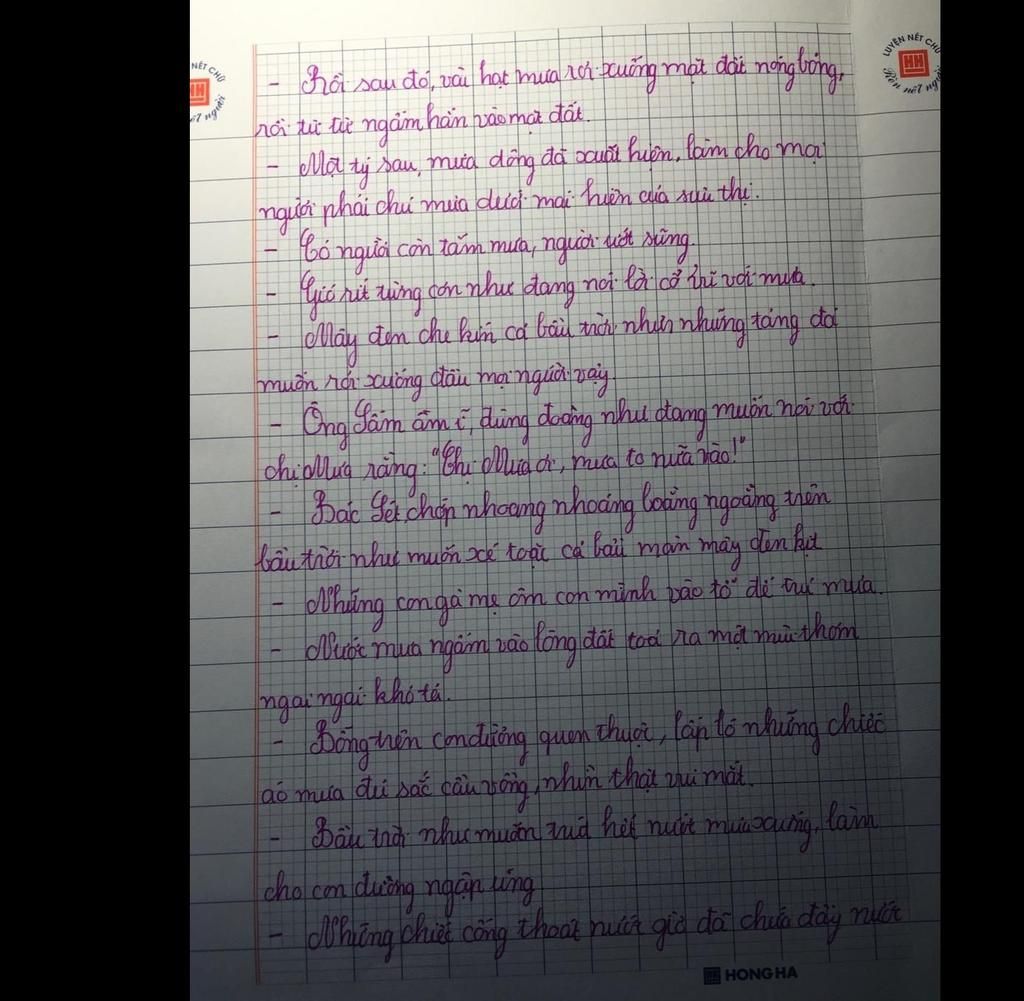 NÉT CHỮ
HH
nết người
LUYỆN NÉT CHỮ
HH
Rèn nết người
- Rồi sau đó, vài hạt mưa rơi xuống mặt đất nóng bỏng,
rồi từ từ ngấm hẳn vào mặt đất.
- Một tý sau, mưa dông đã xuất hiện, làm cho mọi
người phải chú mưa dưới mái hiên của siêu thị.
- Có người còn tắm mưa, người ướt sũng.
- Gió rít từng cơn như đang nói lời cổ vũ với mưa.
- Mây đen che kín cả bầu trời như những tảng đá
muốn rơi xuống đầu mọi người vậy.
- Ông Sấm ầm ĩ, đùng đoàng như đang muốn nói với
chị Mưa rằng: "Chị Mưa ơi, mưa to nữa vào!"
- Bác Sét, chớp nhoang nhoáng loằng ngoằng trên
bầu trời như muốn xé toạc cả màn mây đen kịt
- Những con gà mẹ ôm con mình vào tổ để trú mưa.
- Nước mưa ngấm vào lòng đất toả ra một mùi thơm
ngai ngái khó tả.
- Bỗng trên con đường quen thuộc, lấp ló những chiếc
áo mưa đủ sắc cầu vồng, nhìn thật vui mắt.
- Bầu trời như muốn trút hết nước mưa xuống, làm
cho con đường ngập úng
- Những chiếc cống thoát nước giờ đã chứa đầy nước
HONG HA